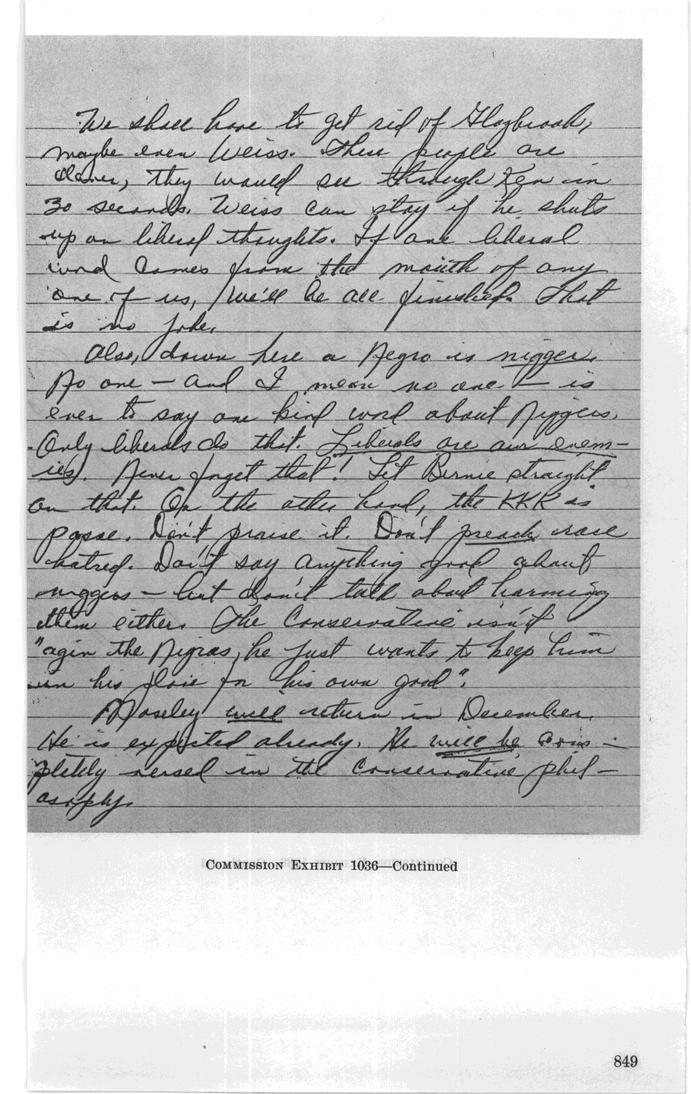 We shall have to get rid of Glazbrook,
maybe even Weiss. These people are
clever, they would see through Ken in
30 seconds. Weiss can stay if he shuts
up on liberal thoughts. If one liberal
word comes from the mouth of any
one of us, we'll be all finished. That
is no joke.
Also, down here a Negro is nigger.
No one — and I mean no one — is
ever to say one kind word about Niggers.
Only liberals do that. Liberals are our enem-
ies. Never forget that! Set Bernie straight
on that. On the other hand, the KKK is
passe. Don't praise it. Don't preach race
hatred. Don't say anything good about
niggers — but don't talk about harming
them either. The Conservative isn't
"agin the Nigras, he just wants to keep him
in his place for his own good".
Moseley will return in December.
He is expected already. He will be com-
pletely versed in the conservative phil-
osophy.
COMMISSION EXHIBIT 1036—Continued
849